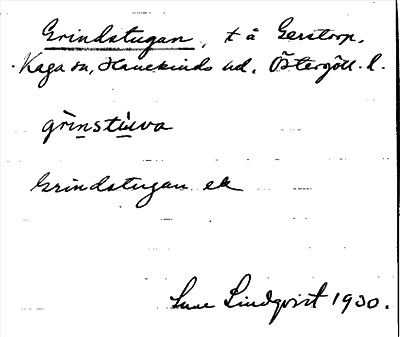 Grindstugan, t å Gerstorp.
Kaga sn, Hanekinds hd. Östergötl. l.
grìnstùwa
Grindstugan ek
Sune Lindqvist 1930.